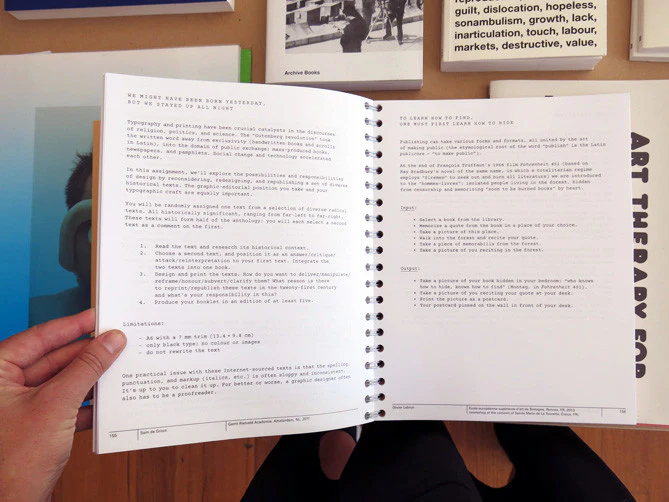 guilt, dislocation, hopeless,
sonambulism, growth, lack,
inarticulation, touch, labour,
markets, destructive, value,
Archive Books
WE MIGHT HAVE BEEN BORN YESTERDAY,
BUT WE STAYED UP ALL NIGHT
Typography and printing have been crucial catalysts in the discourses
of religion, politics, and science. The "Gutenberg revolution" took
the written word away from exclusivity (handwritten books and scrolls
in Latin), into the domain of public exchange: mass-produced books,
newspapers, and pamphlets. Social change and technology accelerated
each other.
In this assignment, we'll explore the possibilities and responsibilities
of design by reconsidering, redesigning, and republishing a set of diverse
historical texts. The graphic-editorial position you take and your
typographic craft are equally important.
You will be randomly assigned one text from a selection of diverse radical
texts. All historically significant, ranging from far-left to far-right.
These texts will form half of the anthology: you will each select a second
text as a comment on the first.
1. Read the text and research its historical context.
2. Choose a second text, and position it as an answer/critique/
attack/reinterpretation to your first text. Integrate the
two texts into one book.
3. Design and print the texts. How do you want to deliver/manipulate/
reframe/honour/subvert/clarify them? What reason is there
to reprint/republish these texts in the twenty-first century
and what's your responsibility in this?
4. Produce your booklet in an edition of at least five.
Limitations:
- A6 with a 7 mm trim (13.4 × 9.8 cm)
- only black type; no colour or images
- do not rewrite the text
One practical issue with these Internet-sourced texts is that the spelling,
punctuation, and markup (italics, etc.) is often sloppy and inconsistent.
It's up to you to clean it up. For better or worse, a graphic designer often
also has to be a proofreader.
Sam de Groot
Gerrit Rietveld Academie, Amsterdam, NL, 2011
TO LEARN HOW TO FIND,
ONE MUST FIRST LEARN HOW TO HIDE
Publishing can take various forms and formats, all united by the act
of making public (the etymological root of the word "publish" is the Latin
publicare - "to make public").
At the end of François Truffaut's 1966 film Fahrenheit 451 (based on
Ray Bradbury's novel of the same name, in which a totalitarian regime
employs "firemen" to seek out and burn all literature) we are introduced
to the "hommes-livres": isolated people living in the forest, hidden
from censorship and memorizing "soon to be burned books" by heart.
Input:
• Select a book from the library.
• Memorize a quote from the book in a place of your choice.
• Take a picture of this place.
• Walk into the forest and recite your quote.
• Take a piece of memorabilia from the forest.
• Take a picture of you reciting in the forest.
Output:
• Take a picture of your book hidden in your bedroom: "who knows
how to hide, knows how to find" (Montag, in Fahrenheit 451).
• Take a picture of you reciting your quote at your desk.
• Print the picture as a postcard.
• Your postcard pinned on the wall in front of your desk.
ART THERAPY FOR